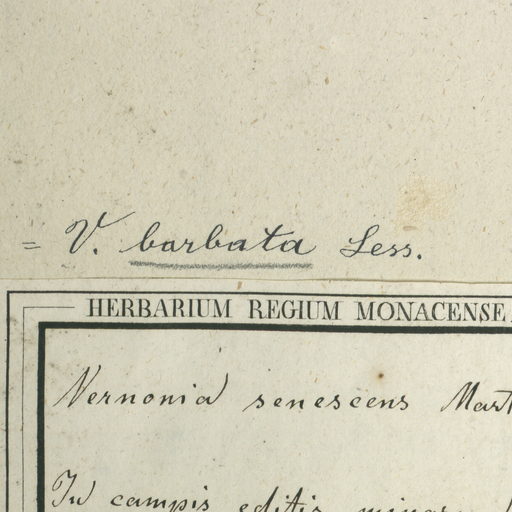 = V. barbata Less.
HERBARIUM REGIUM MONACENSE.
Vernonia senescens Mart
In campis editis